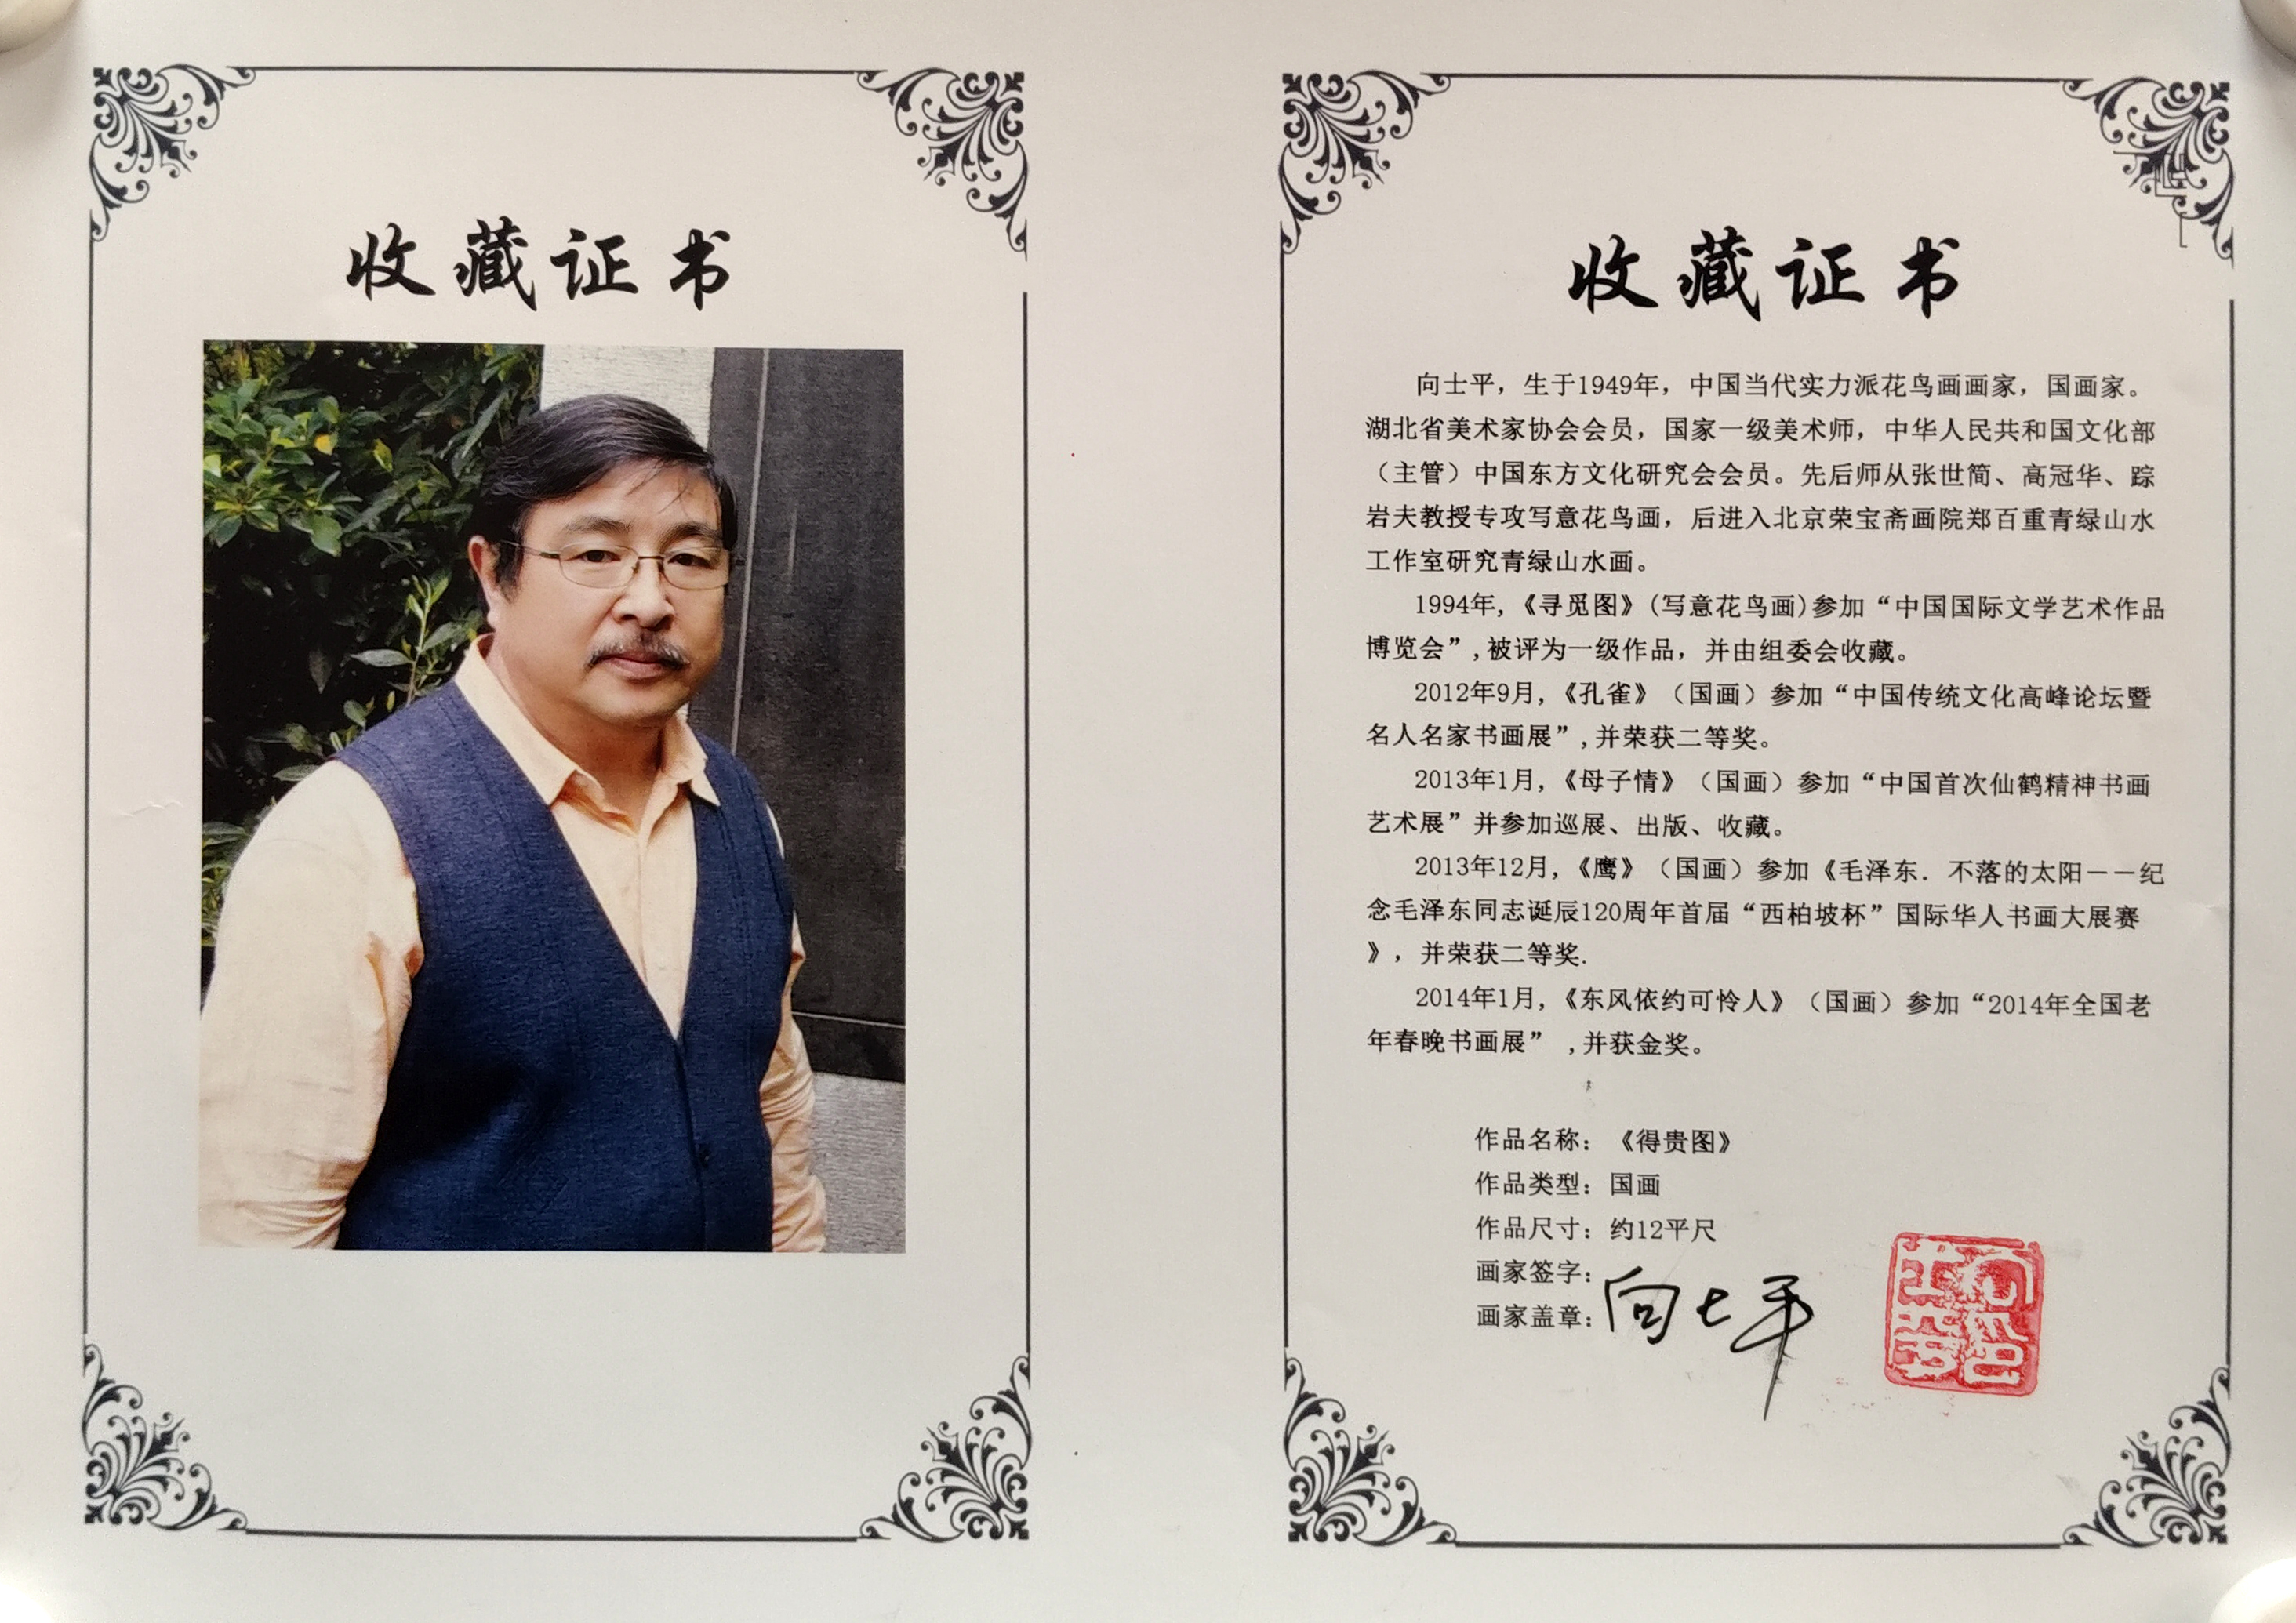 收藏证书
收藏证书
向士平，生于1949年，中国当代实力派花鸟画画家，国画家。
湖北省美术家协会会员，国家一级美术师，中华人民共和国文化部
（主管）中国东方文化研究会会员。先后师从张世简、高冠华、踪
岩夫教授专攻写意花鸟画，后进入北京荣宝斋画院郑百重青绿山水
工作室研究青绿山水画。
1994年,《寻觅图》(写意花鸟画)参加“中国国际文学艺术作品
博览会”,被评为一级作品，并由组委会收藏。
2012年9月,《孔雀》（国画）参加“中国传统文化高峰论坛暨
名人名家书画展”,并荣获二等奖。
2013年1月,《母子情》（国画）参加“中国首次仙鹤精神书画
艺术展”并参加巡展、出版、收藏。
2013年12月,《鹰》（国画）参加《毛泽东．不落的太阳－－纪
念毛泽东同志诞辰120周年首届“西柏坡杯”国际华人书画大展赛
》，并荣获二等奖.
2014年1月,《东风依约可怜人》（国画）参加“2014年全国老
年春晚书画展” ,并获金奖。
作品名称：《得贵图》
作品类型：国画
作品尺寸：约12平尺
画家签字：
画家盖章：向士平